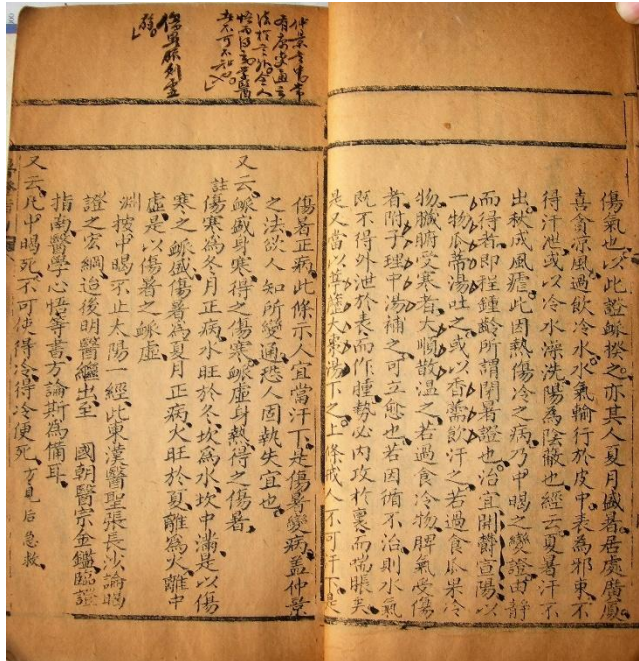 傷氣也以此證脈揆之亦其人夏月盛暑居處廣廈
喜貪涼風過飲冷水水氣輸行於皮中表為邪束不
得汗泄或以冷水澡洗陽為陰敝也經云夏暑汗不
出秋成風瘧此因熱傷冷之病乃中暍之變證由靜
而得者即程鍾齡所謂閉暑證也治宜開鬱宣陽以
一物瓜蒂湯吐之或以香薷飲汗之若過食瓜果冷
物臟腑受寒者大順散溫之若過食冷物脾氣受傷
者附子理中湯補之可立愈也若因循不治則水氣
既不得外泄於表而作腫勢必內攻於裏而喘脹矣
是人當以葶藶大棗湯下之上條戒人不可汗下是
傷暑正病此條示人宜當汗下是傷暑變病蓋仲景
之法欲人知所變通恐人固執失宜也
又云脈盛身寒得之傷寒脈虛身熱得之傷暑
註傷寒為冬月正病水旺於冬坎為水坎中滿是以傷
寒之脈盛傷暑為夏月正病火旺於夏離為火離中
虛是以傷暑之脈虛
淵按中暍不止太陽一經此東漢醫聖張長沙論暍
證之宏綱迨後明醫繼出至 國朝醫宗金鑑臨證
指南醫學心悟等書方論斯為備耳
又云凡中暍死不可使得冷得冷便死 方見后急救
仲景立萬常
有

傷寒脈刻虛